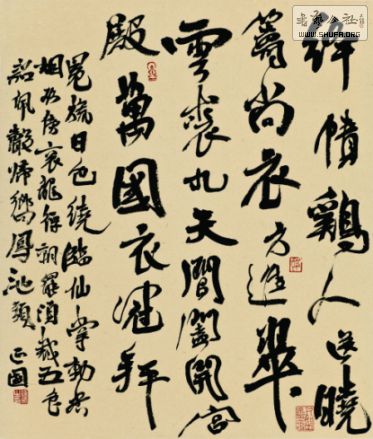 絳幘鷄人送曉
籌尚衣方進翠
雲裘九天閶闔開宮
殿萬國衣冠拜
冕旒日色纔臨仙掌動香
烟欲傍衮龍浮朝罷須裁五色
詔佩聲歸嚮鳳池頭 正國
書藝公社
WWW.SHUFA.ORG